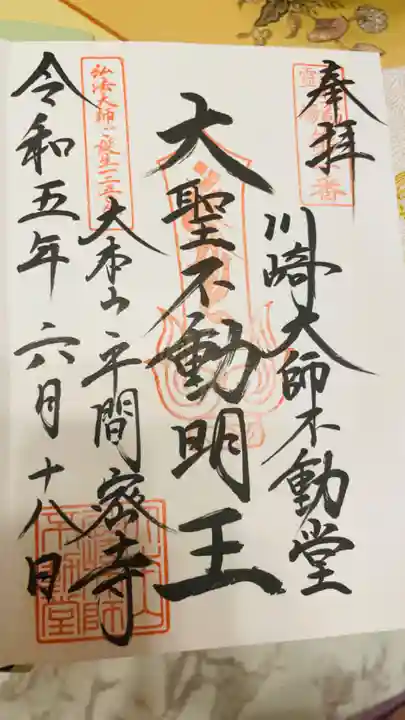 奉拝
川崎大師不動堂
大聖不動明王
弘法大師ご誕生一二五
大本山平間寺
令和五年六月十八日